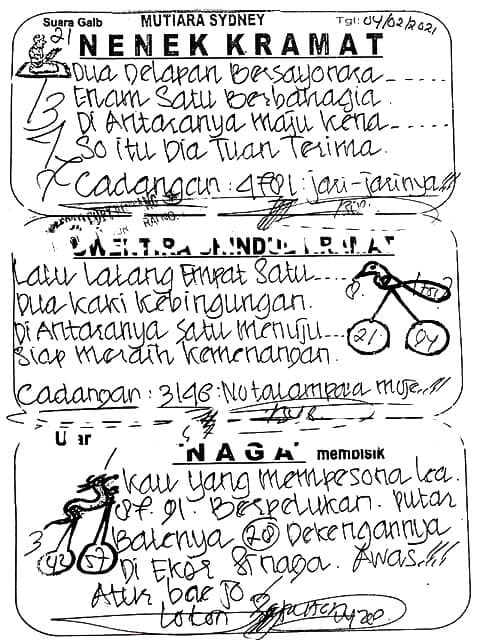 Suara Galb MUTIARA SYDNEY Tgl: 04/02/2021
21
NENEK KRAMAT
Dua Delapan Bersayonara
Enam Satu Berbahagia
Di Antaranya maju kena
So itu Dia Tuan Terima.
Cadangan: 4781: jari-jarinya!!!
KRAMAT
Lalu Lalang Empat Satu
Dua kaki kebingungan.
Di Antaranya satu menuju
Siap meraih kemenangan.
21 04
Cadangan: 3146: Notalampara
Ular 'NAGA' membisik
kau yang mempesona
Berpelukan. putar
Balenya 28 Dekengannya
Di Ekor naga. Awas!!!
3
42 57
Atur bae jo